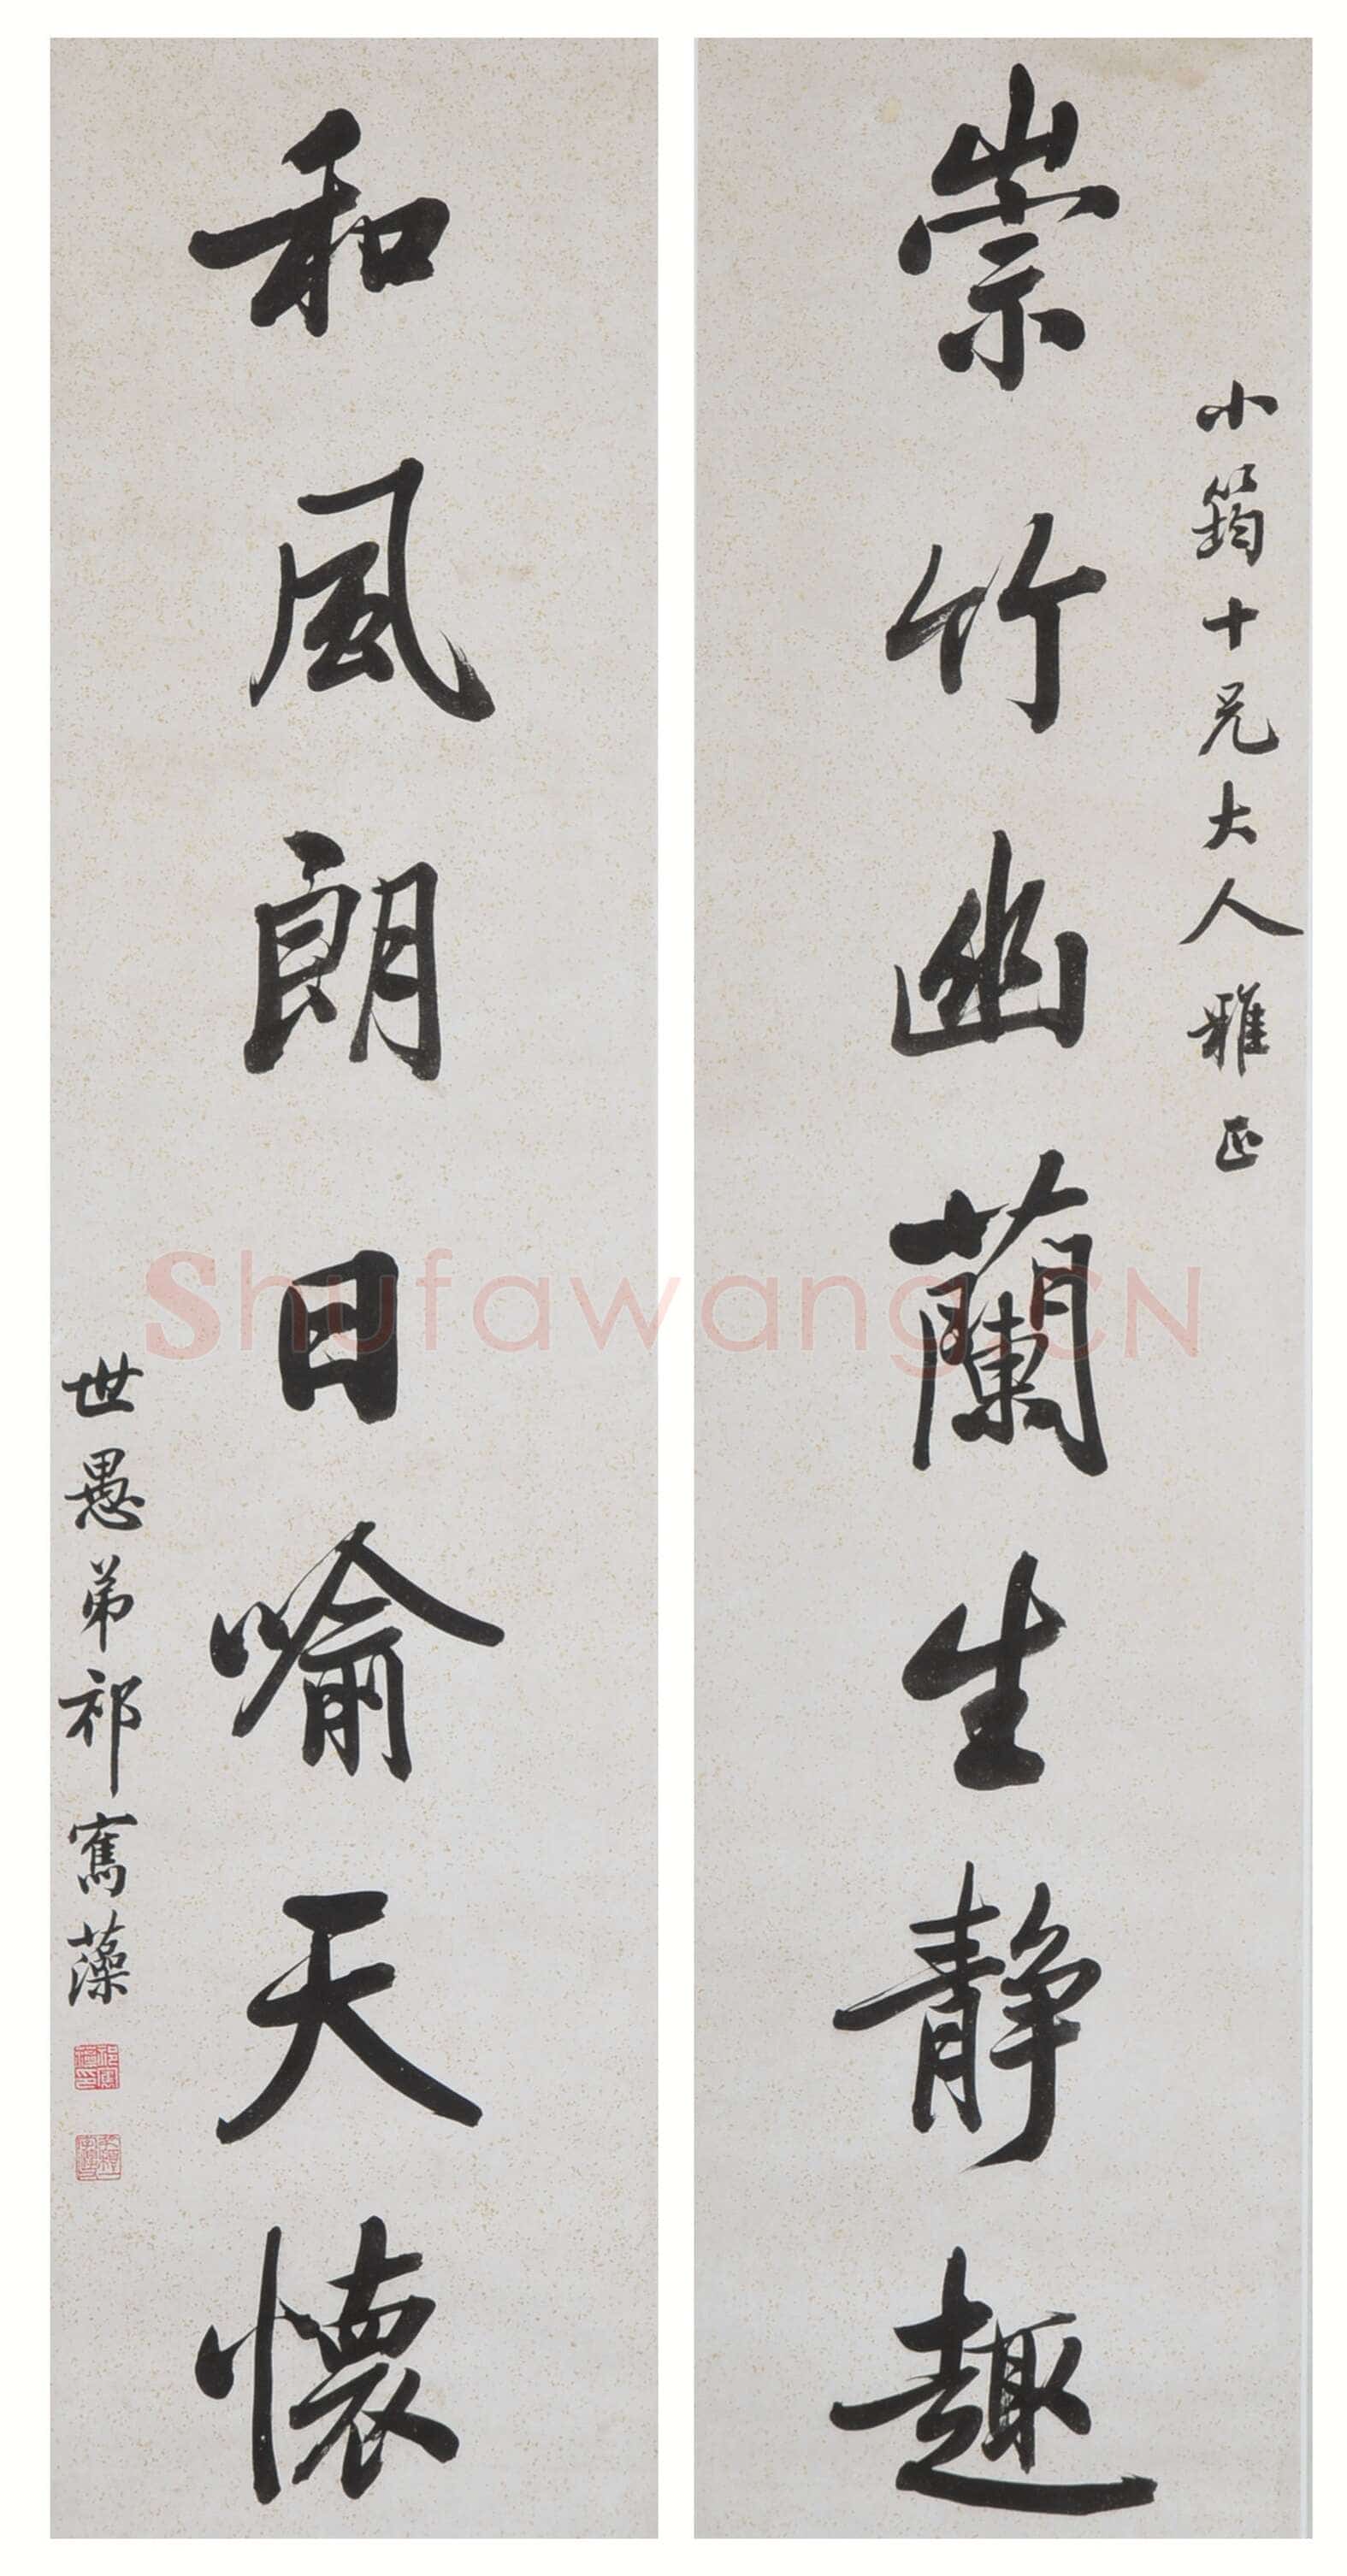 崇竹幽蘭生静趣
小筠十兄大人雅正
和風朗日喻天懷
世愚弟祁寯藻
Shufawang.CN